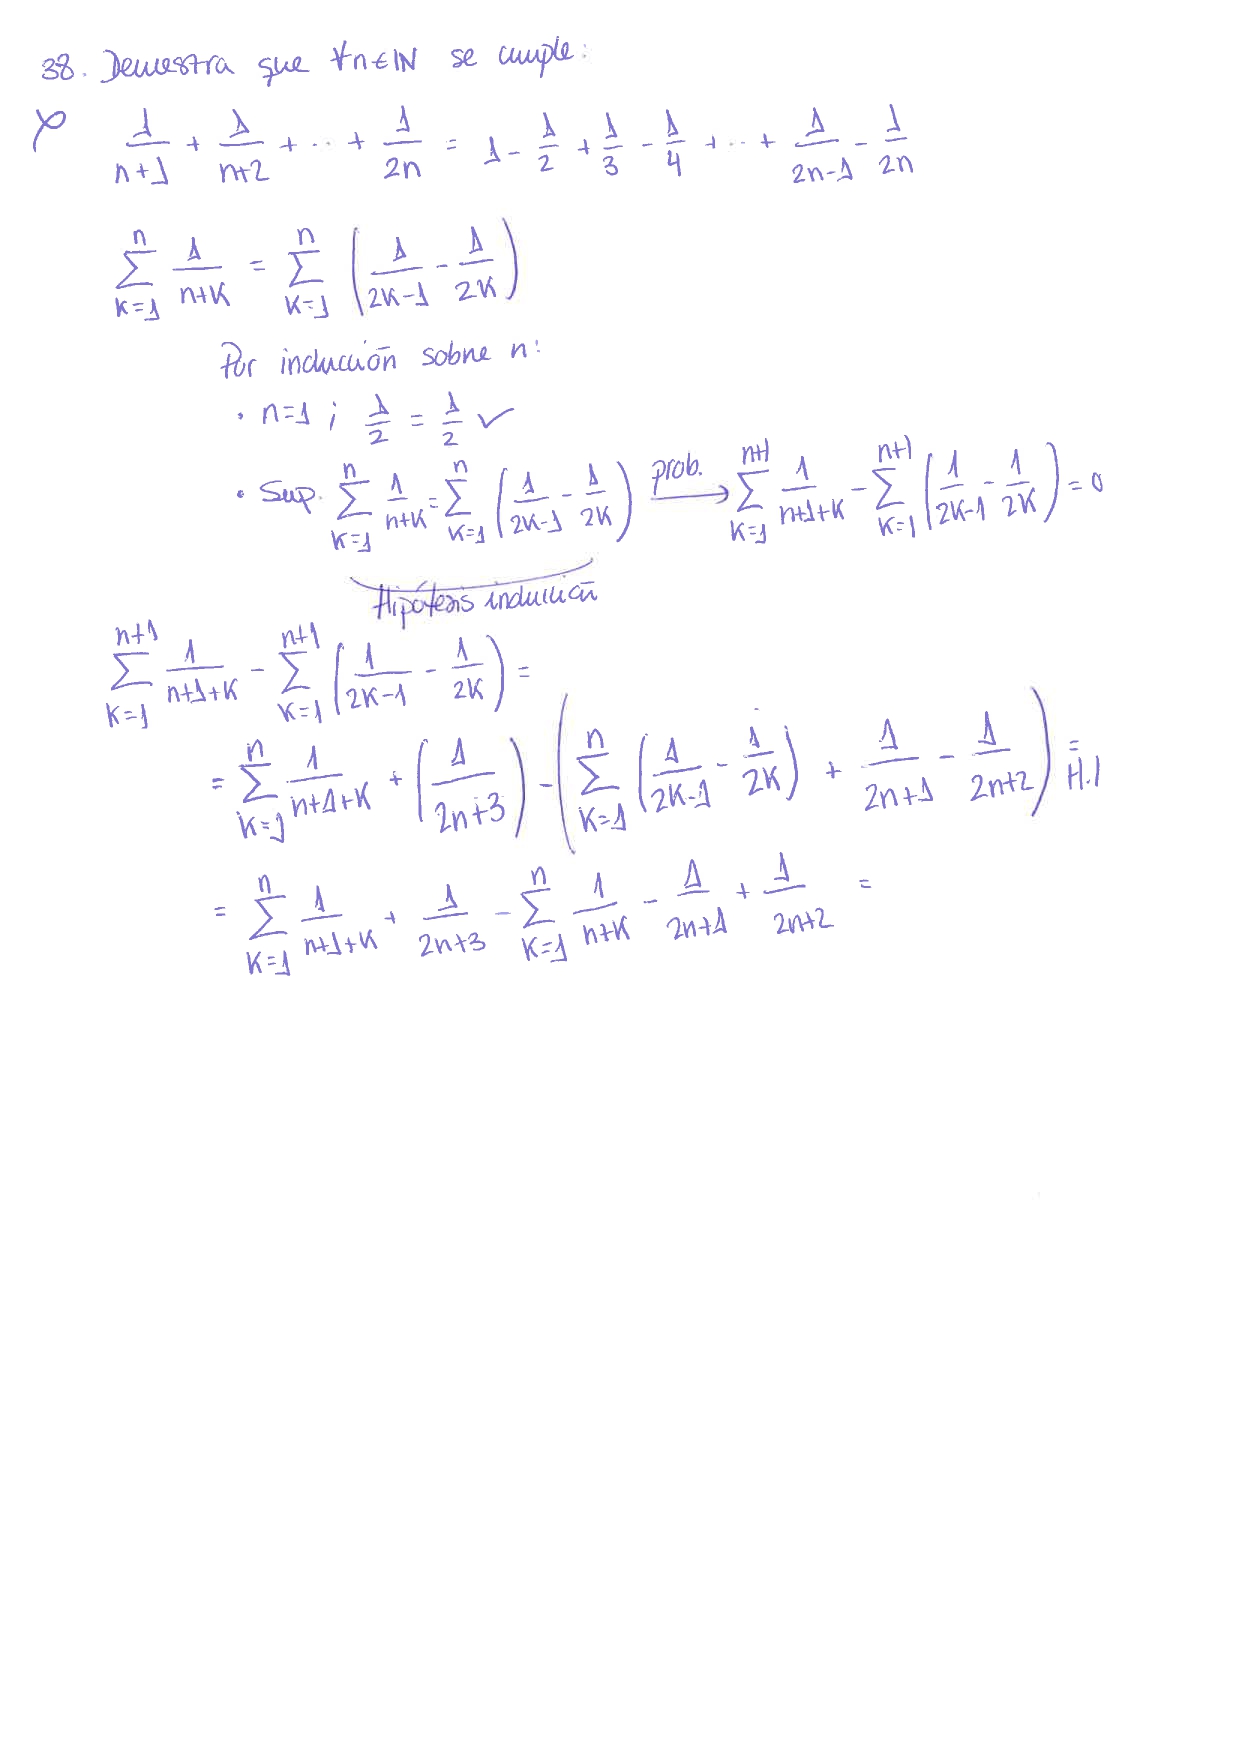 38. Demuestra que ∀n∈ℕ se cumple:
1/(n+1) + 1/(n+2) + ... + 1/(2n) = 1 - 1/2 + 1/3 - 1/4 + ... + 1/(2n-1) - 1/(2n)
∑_{k=1}^{n} 1/(n+k) = ∑_{k=1}^{n} (1/(2k-1) - 1/(2k))
Por inducción sobre n:
• n=1 ; 1/2 = 1/2 ✓
• Sup. ∑_{k=1}^{n} 1/(n+k) = ∑_{k=1}^{n} (1/(2k-1) - 1/(2k)) prob. → ∑_{k=1}^{n+1} 1/(n+1+k) - ∑_{k=1}^{n+1} (1/(2k-1) - 1/(2k)) = 0
Hipótesis inducción
∑_{k=1}^{n+1} 1/(n+1+k) - ∑_{k=1}^{n+1} (1/(2k-1) - 1/(2k)) =
= ∑_{k=1}^{n} 1/(n+1+k) + (1/(2n+3)) - (∑_{k=1}^{n} (1/(2k-1) - 1/(2k)) + 1/(2n+1) - 1/(2n+2)) = H.I
= ∑_{k=1}^{n} 1/(n+1+k) + 1/(2n+3) - ∑_{k=1}^{n} 1/(n+k) - 1/(2n+1) + 1/(2n+2) =